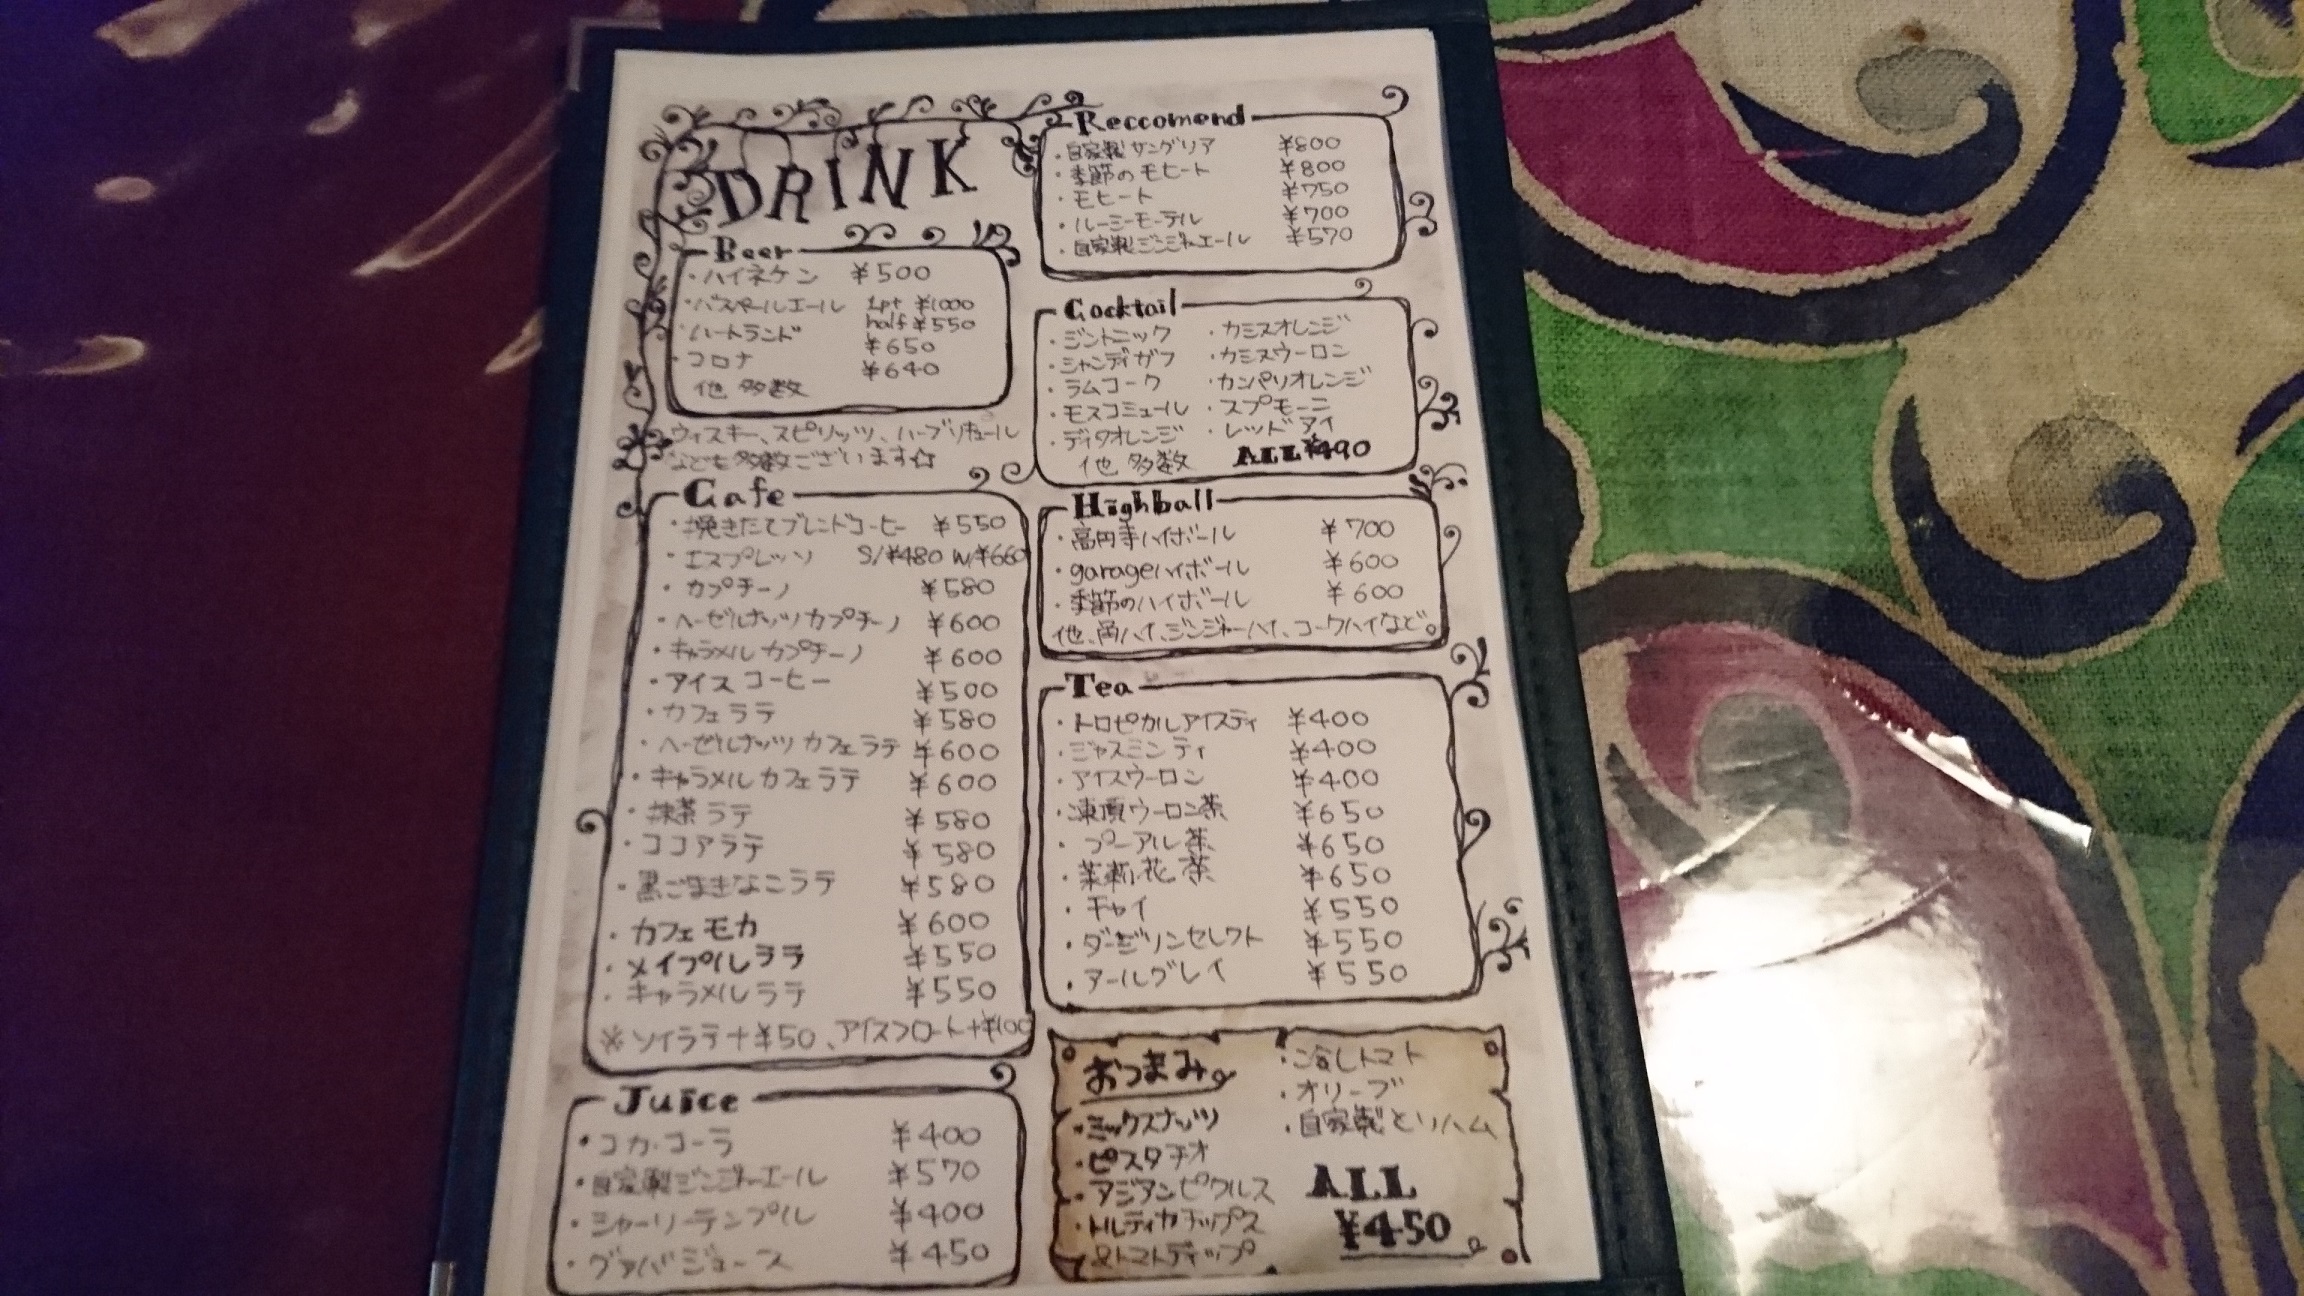 DRINK
Beer
・ハイネケン ¥500
・バスペールエール 1pt ¥1000
half ¥550
・ハートランド ¥650
・コロナ ¥640
他 多数
ウィスキー、スピリッツ、ハーブリキュール
なども多数ございます☆
Cafe
・挽きたてブレンドコーヒー ¥550
・エスプレッソ S/¥480 W/¥660
・カプチーノ ¥580
・ヘーゼルナッツカプチーノ ¥600
・キャラメルカプチーノ ¥600
・アイスコーヒー ¥500
・カフェラテ ¥580
・ヘーゼルナッツカフェラテ ¥600
・キャラメルカフェラテ ¥600
・抹茶ラテ ¥580
・ココアラテ ¥580
・黒ごまきなこラテ ¥580
・カフェモカ ¥600
・メイプルララ ¥550
・キャラメルラテ ¥550
※ソイラテ+¥50、アイスフロート+¥100
Juice
・コカ・コーラ ¥400
・自家製ジンジャーエール ¥570
・シャーリーテンプル ¥400
・グァバジュース ¥450
Reccomend
・自家製サングリア ¥800
・季節のモヒート ¥800
・モヒート ¥750
・ルーシーモーテル ¥700
・自家製ジンジャーエール ¥570
Cocktail
・ジントニック ・カシスオレンジ
・シャンディガフ ・カシスウーロン
・ラムコーク ・カンパリオレンジ
・モスコミュール ・スプモーニ
・ディタオレンジ ・レッドアイ
他 多数 ALL ¥490
Highball
・高円寺ハイボール ¥700
・garageハイボール ¥600
・季節のハイボール ¥600
他、角ハイ、ジンジャーハイ、コークハイなど。
Tea
・トロピカルアイスティ ¥400
・ジャスミンティ ¥400
・アイスウーロン ¥400
・凍頂ウーロン茶 ¥650
・プーアル茶 ¥650
・茉莉花茶 ¥650
・チャイ ¥550
・ダージリンセレクト ¥550
・アールグレイ ¥550
おつまみ
・ミックスナッツ
・ピスタチオ
・アジアンピクルス
・トルティカチップス
&トマトディップ
・冷しトマト
・オリーブ
・自家製とりハム
ALL
¥450